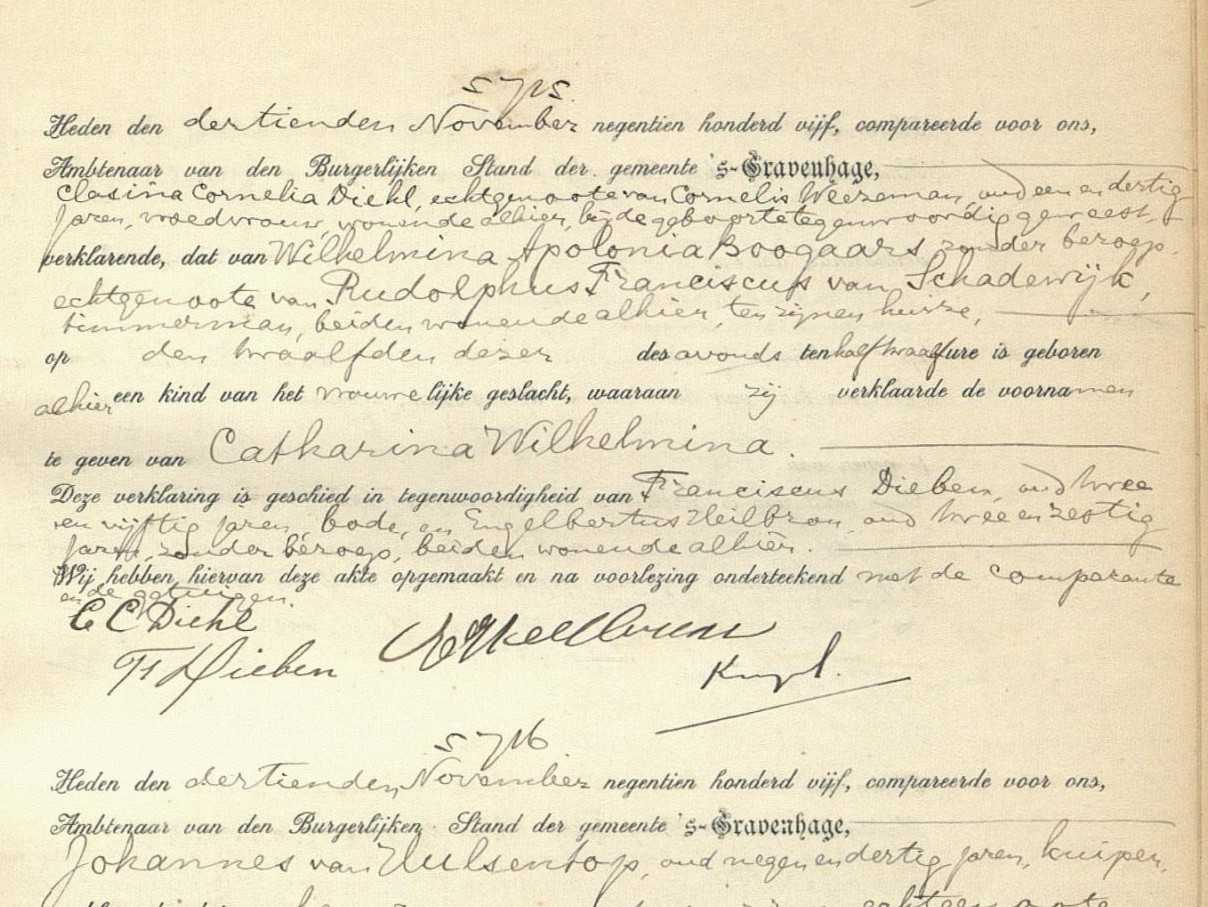 5715.
Heden den dertienden November negentien honderd vijf, compareerde voor ons,
Ambtenaar van den Burgerlijken Stand der gemeente 's-Gravenhage,
Clasina Cornelia Diehl, echtgenoote van Cornelis Weezeman, oud een en dertig
jaren, vroedvrouw, wonende alhier, bij de geboorte tegenwoordig geweest,
verklarende, dat van Wilhelmina Apolonia Boogaars, zonder beroep,
echtgenoote van Rudolphus Franciscus van Schadewijk,
timmerman, beiden wonende alhier, ten zijnen huize,
op den twaalfden dezer des avonds ten half twaalf ure is geboren
alhier een kind van het vrouwelijke geslacht, waaraan zij verklaarde de voornamen
te geven van Catharina Wilhelmina.
Deze verklaring is geschied in tegenwoordigheid van Franciscus Dieben, oud twee
en vijftig jaren, bode, en Engelbertus Heilbron, oud twee en zestig
jaren, zonder beroep, beiden wonende alhier.
Wij hebben hiervan deze akte opgemaakt en na voorlezing onderteekend met de comparante
en de getuigen.
C C Diehl
Fr Dieben
5716.
Heden den dertienden November negentien honderd vijf, compareerde voor ons,
Ambtenaar van den Burgerlijken Stand der gemeente 's-Gravenhage,
Johannes van Hulsentop, oud negen en dertig jaren, kuiper,
echtgenoote